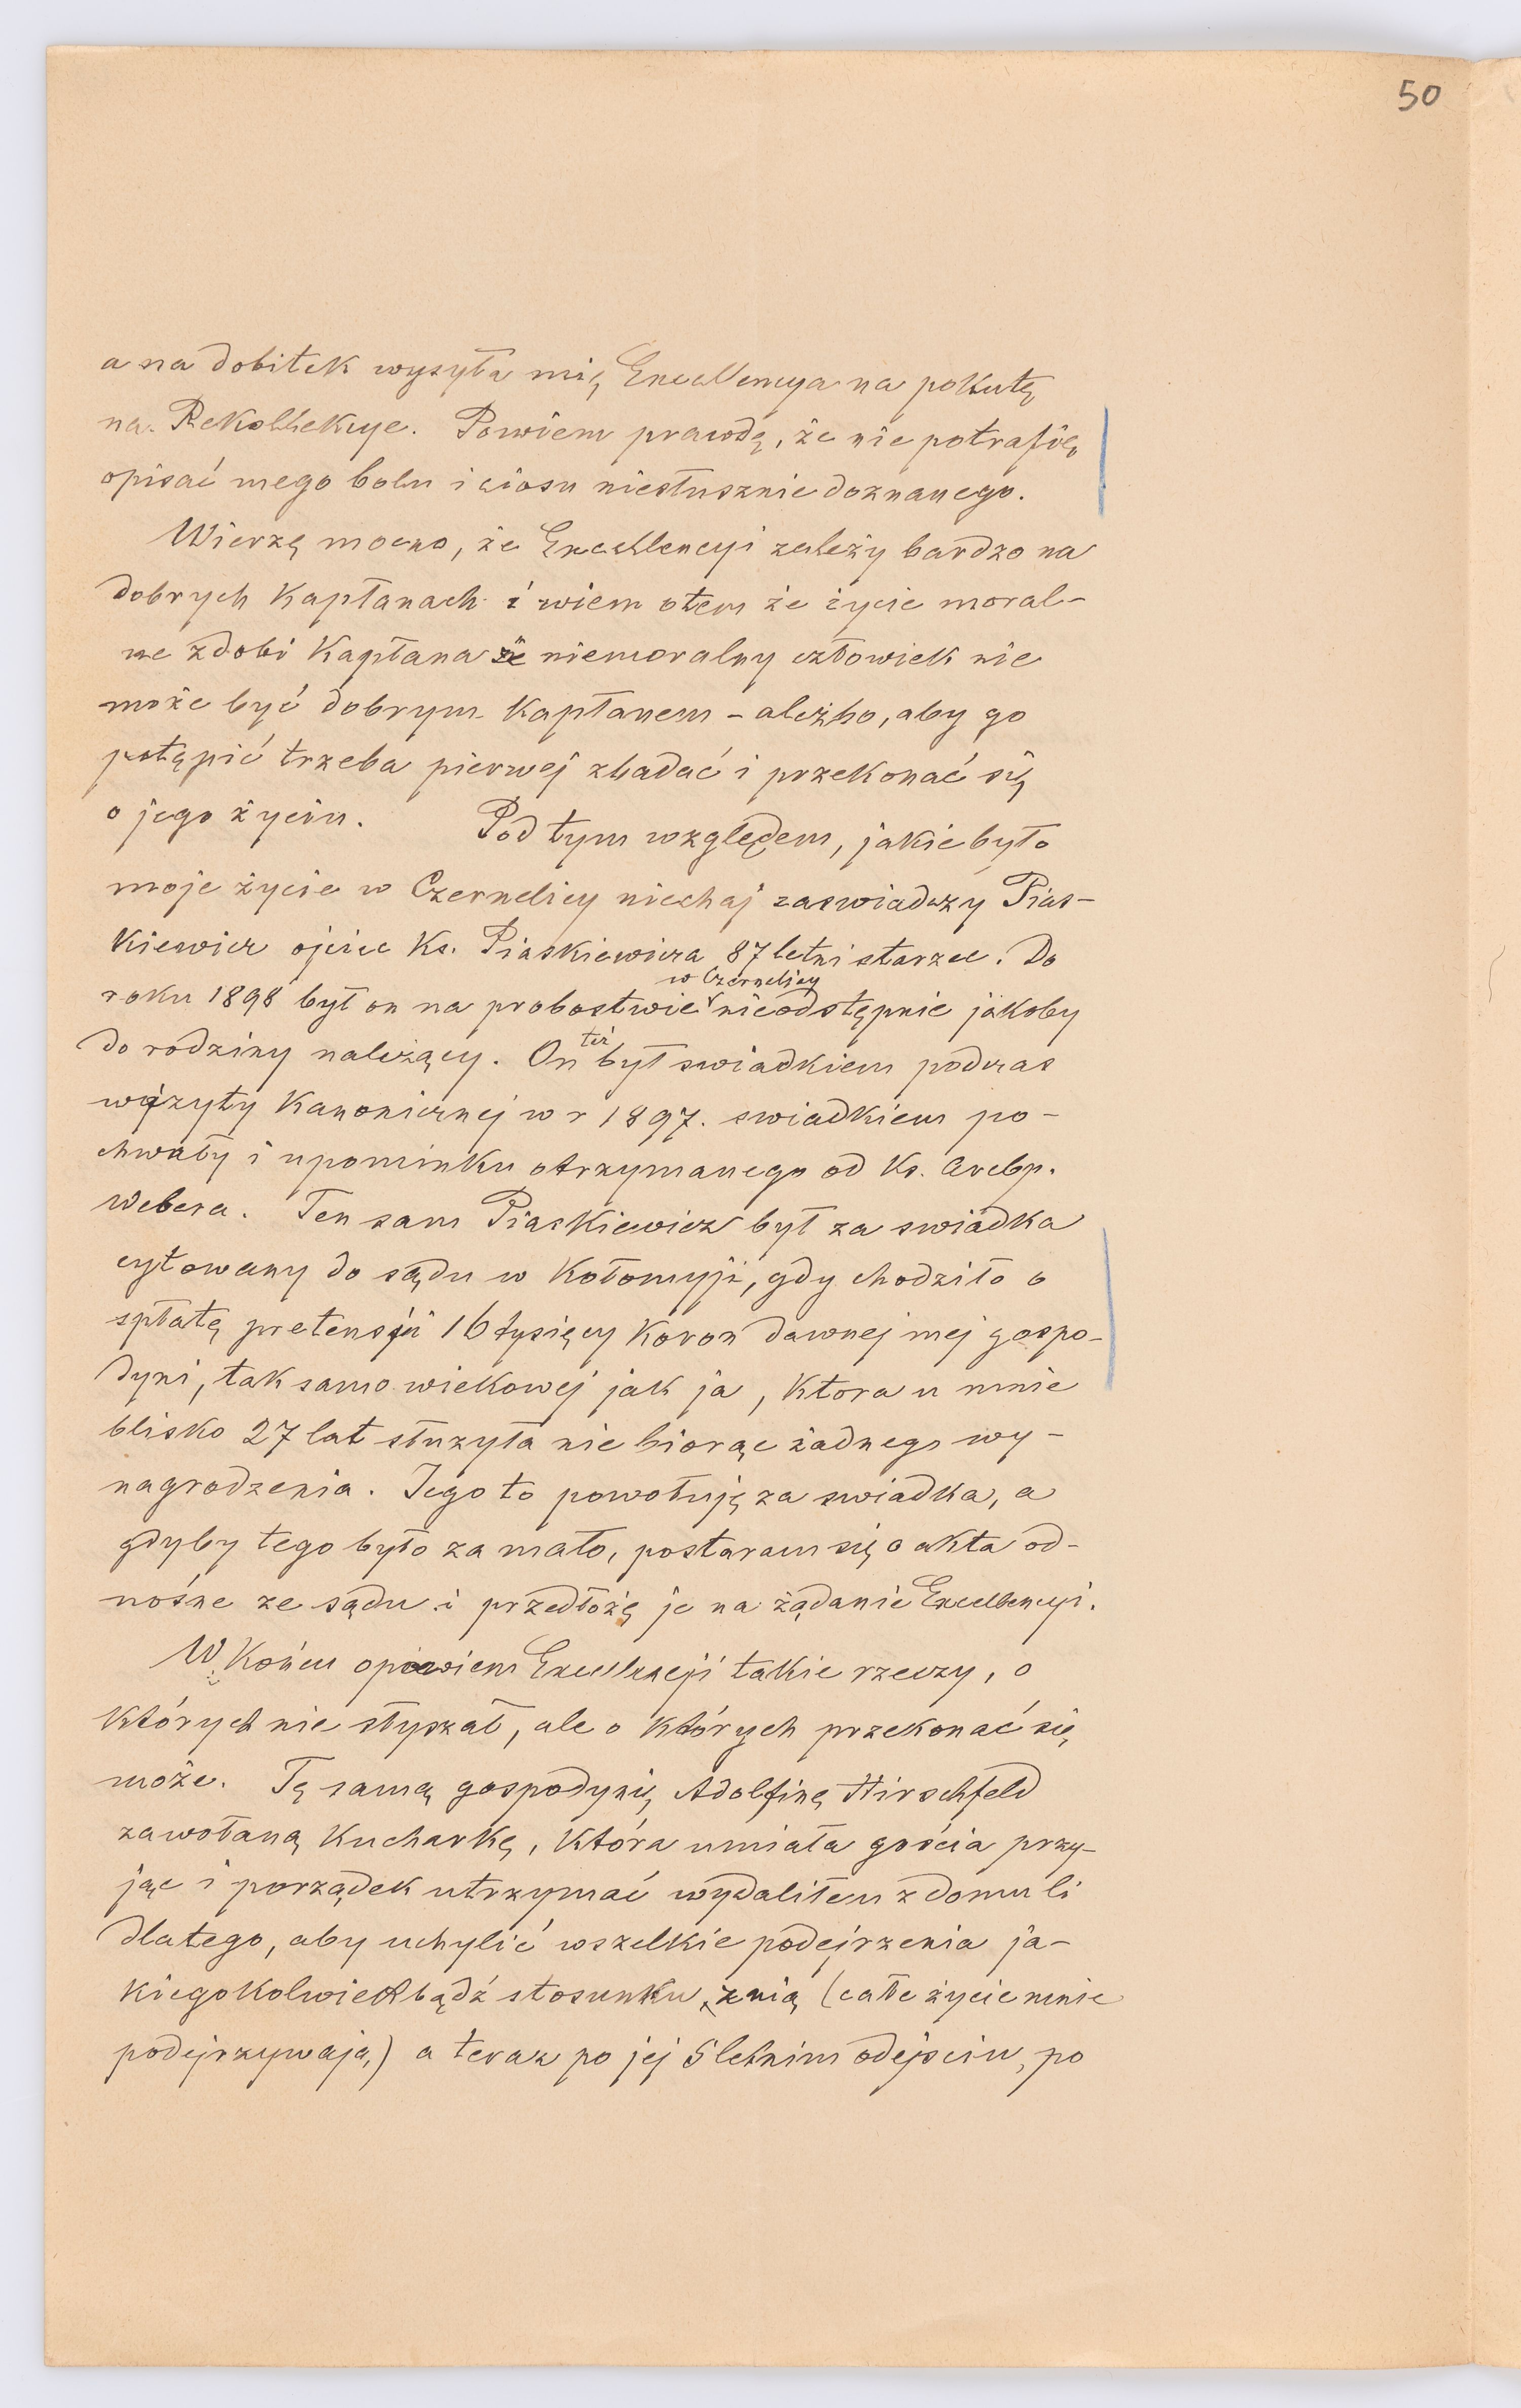 50
a na dobitek wysyła mię Excellencya na pokutę
na Rekollekcye. Powiem prawdę, że nie potrafię
opisać mego bolu i ciosu niesłusznie doznanego.
Wierzę mocno, że Excellencyi zależy bardzo na
dobrych Kapłanach i wiem otem że życie moral-
ne zdobi Kapłana że niemoralny człowiek nie
może być dobrym Kapłanem - aleć, aby go
potępić trzeba pierwej zbadać i przekonać się
o jego życiu. Pod tym względem, jakie było
moje życie w Czernelicy niechaj zaswiadczy Pias-
Kiewicz ojciec Ks. Piaskiewicza 87 letni starzec. Do
w Czernelicy
roku 1898 był on na probostwie nieodstępnie jakoby
do rodziny należący. On też był swiadkiem podczas
wizyty Kanonicznej w r 1897. swiadkiem po-
chwały i upominku otrzymanego od Ks. Arcbp.
Webera. Ten sam Piaskiewicz był za swiadka
cytowany do sądu w Kołomyji, gdy chodziło o
spłatę pretensji 16 tysięcy Koron dawnej mej gospo-
dyni, tak samo wiekowej jak ja, Ktora u mnie
blisko 27 lat służyła nie biorąc żadnego wy-
nagrodzenia. Jego to powołuję za swiadka, a
gdyby tego było za mało, postaram się o akta od-
nośne ze sądu i przedłożę je na żądanie Excellencyi.
W Końcu opowiem Excellencji takie rzeczy, o
Których nie słyszał, ale o Których przekonać się
może. Tę samą gospodynię Adolfinę Hirschfeld
zawołaną Kucharkę, Która umiała gościa przy-
jąć i porządek utrzymać wydaliłem z domu li
dlatego, aby uchylić wszelkie podejrzenia ja-
kiegokolwiekbądź stosunku z nią (całe życie mnie
podejrzywają) a teraz po jej 5 letnim odejsciu, po